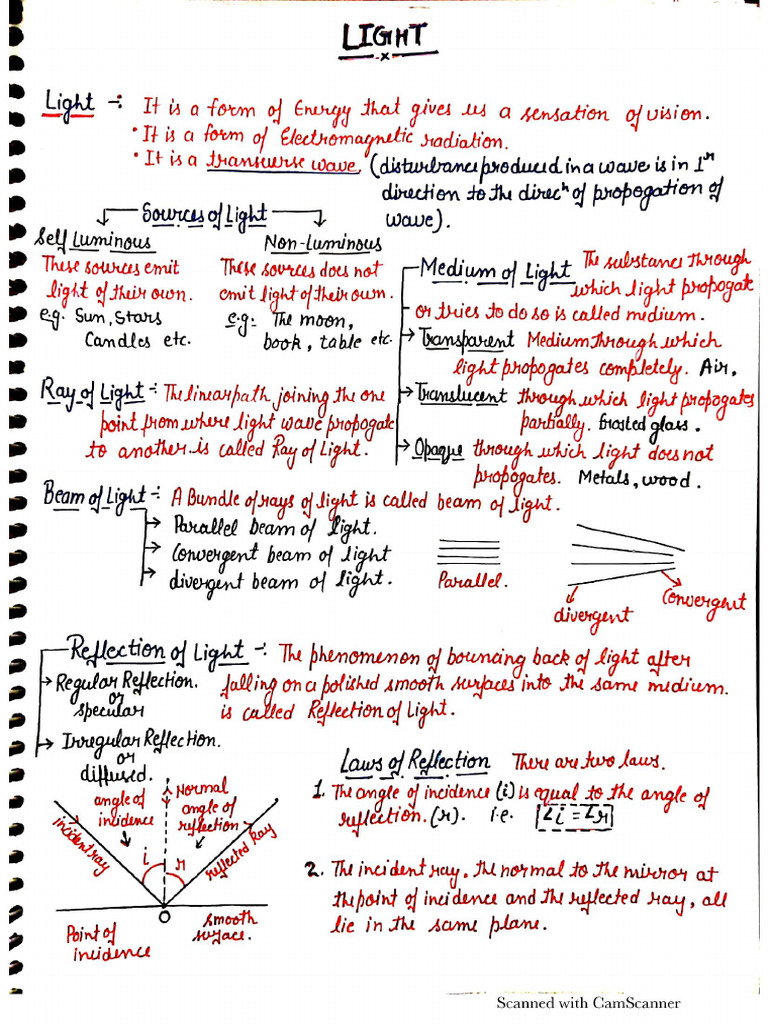 LIGHT
Light -: It is a form of Energy that gives us a sensation of vision.
• It is a form of Electromagnetic radiation.
• It is a transverse wave. (disturbance produced in a wave is in 1r
direction to the direcn of propogation of
wave).
Sources of Light
Self Luminous
These sources emit
light of their own.
e.g. Sun, Stars
Candles etc.
Non-Luminous
These sources does not
emit light of their own.
e.g: The moon,
book, table etc.
Medium of Light The substance through
which light propogate
or tries to do so is called midium.
→ Transparent Medium through which
light propogates completely. Air,
→ Translucent through which light propogates
partially. frosted glass.
→ Opaque through which light does not
propogates. Metals, wood.
Ray of Light -: The linear path joining the one
point from where light wave propogate
to another is called Ray of Light.
Beam of Light -: A Bundle of rays of light is called beam of light.
→ Parallel beam of light.
→ Convergent beam of light
→ divergent beam of light.
Parallel.
divergent
Convergent
Reflection of Light -: The phenomenon of bouncing back of light after
falling on a polished smooth surfaces into the same medium.
is called Reflection of Light.
→ Regular Reflection.
or
specular
→ Irregular Reflection.
or
diffused.
angle of
incidence
Normal
angle of
reflection
incident ray
reflected Ray
i
r
O
Point of
incidence
smooth
surface.
Laws of Reflection There are two laws.
1. The angle of incidence (i) is equal to the angle of
reflection. (r). i.e. ∠i = ∠r
2. The incident ray, the normal to the mirror at
the point of incidence and the reflected ray, all
lie in the same plane.
Scanned with CamScanner